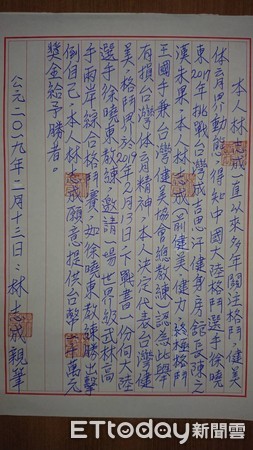 本人林志成一直以來多年關注格鬥,健美
体育界動態,得知中國大陸格鬥選手徐曉
東2017年挑戰台灣成吉思汗健身房館長陳之
漢未果,本人林志成(前健美,健力,終極格鬥
王國手兼台灣健美協會總教練)認為此舉
有損台灣体育精神,本人決定代表台灣健
美,格鬥界於2019年2月13日下戰書一份向大陸
選手徐曉東教練,邀請一場世界級武林高
手兩岸綜合格鬥賽,如徐曉東教練勝出擊
倒自己,本人林志成願意提供台幣 萬元
獎金給予勝者。
公元二〇一九年二月十三日:林志成親筆
ETtoday新聞雲